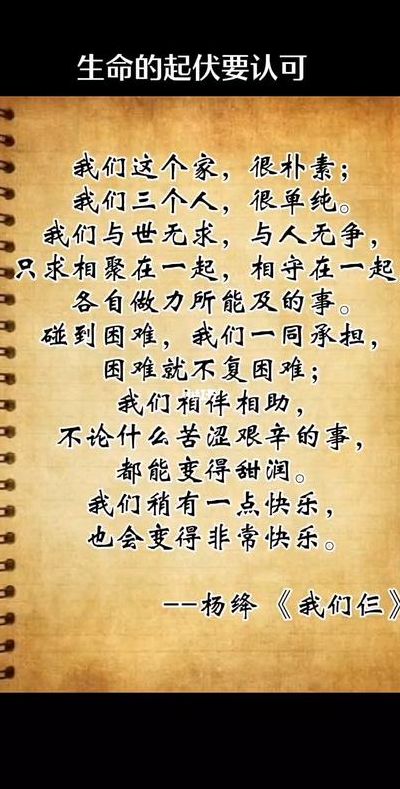 生命的起伏要认可
我们这个家，很朴素；
我们三个人，很单纯。
我们与世无求，与人无争，
只求相聚在一起，相守在一起
各自做力所能及的事。
碰到困难，我们一同承担，
困难就不复困难；
我们相伴相助，
不论什么苦涩艰辛的事，
都能变得甜润。
我们稍有一点快乐，
也会变得非常快乐。
--杨绛《我们仨》